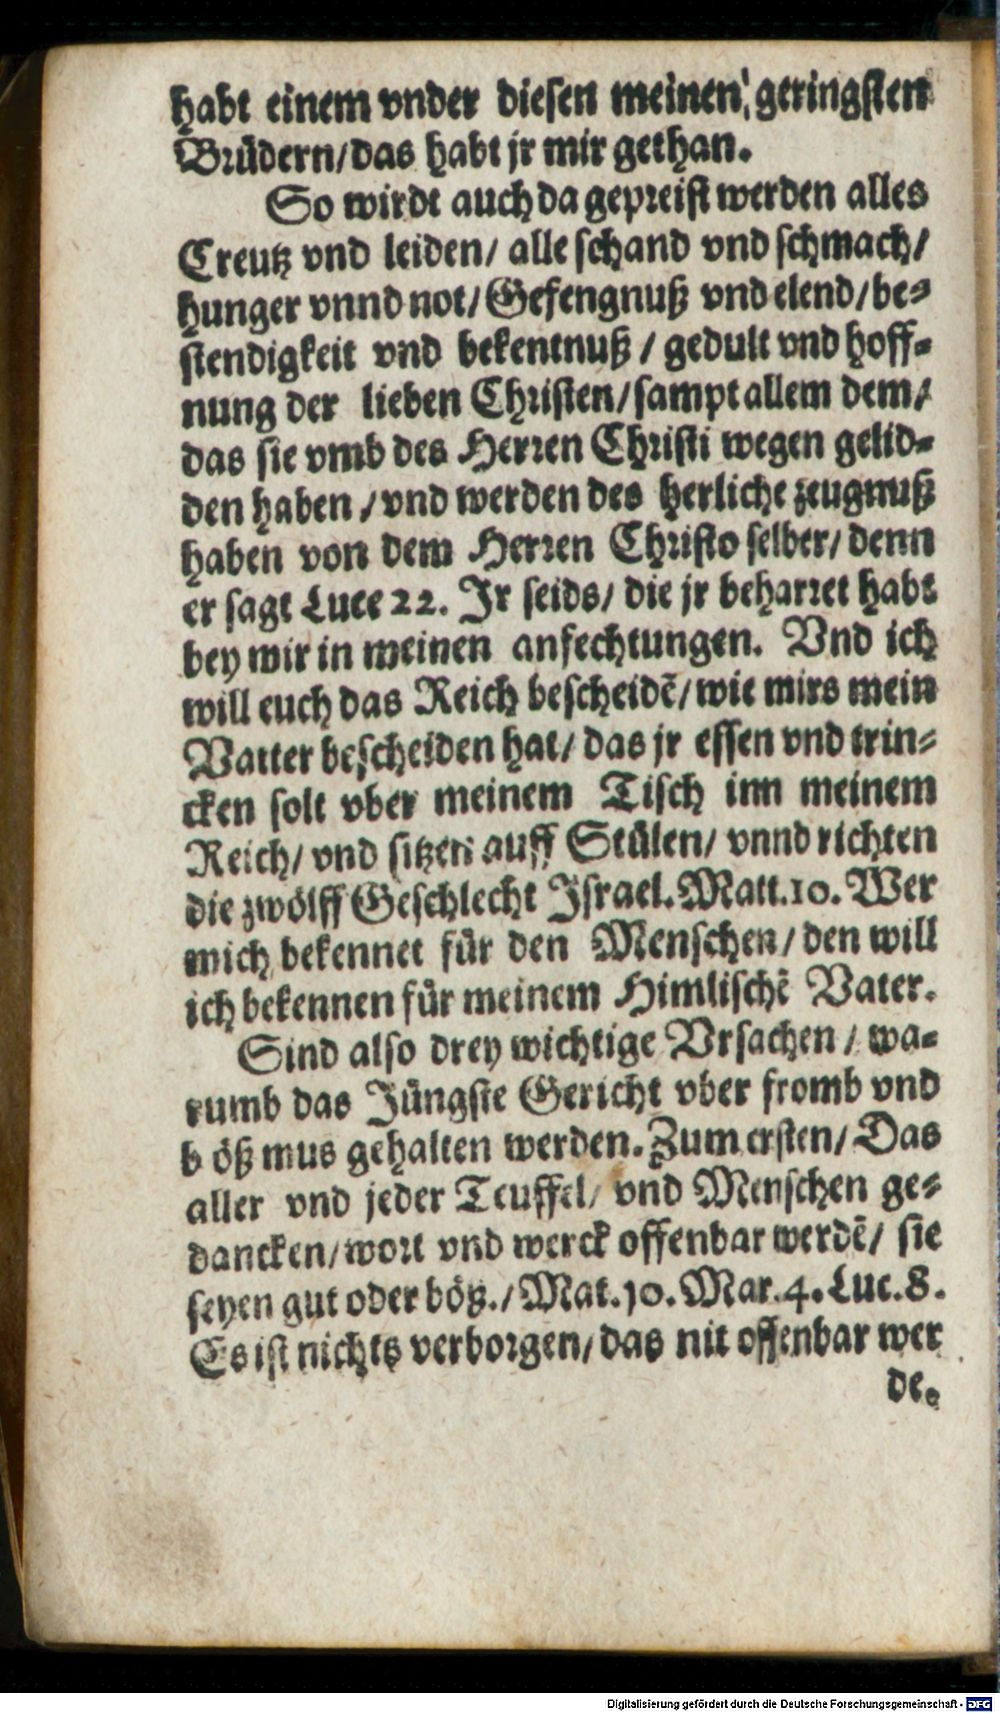 habt einem vnder diesen meinen geringsten
Brüdern/das habt jr mir gethan.
So wirdt auch da gepreist werden alles
Creutz vnd leiden/ alle schand vnd schmach/
hunger vnnd not/ Gefengnuß vnd elend/be⸗
stendigkeit vnd bekentnuß / gedult vnd hoff⸗
nung der lieben Christen/sampt allem dem/
das sie vmb des Herren Christi wegen gelid⸗
den haben / vnd werden des herliche zeugnuß
haben von dem Herren Christo selber/ denn
er sagt Luce 22. Jr seids/ die jr beharret habt
bey wir in meinen anfechtungen. Vnd ich
will euch das Reich bescheidẽ/ wie mirs mein
Vatter bescheiden hat/ das jr essen vnd trin⸗
cken solt vber meinem Tisch inn meinem
Reich/ vnd sitzen auff Stülen/ vnnd richten
die zwölff Geschlecht Jsrael. Matt.10. Wer
mich bekennet für den Menschen/ den will
ich bekennen für meinem Himlischẽ Vater.
Sind also drey wichtige Vrsachen / wa⸗
rumb das Jüngste Gericht vber fromb vnd
böß mus gehalten werden. Zum ersten/ Das
aller vnd jeder Teuffel/ vnd Menschen ge⸗
dancken/wort vnd werck offenbar werdẽ/ sie
seyen gut oder böß./ Mat.10. Mar.4. Luc.8.
Es ist nichts verborgen/das nit offenbar wer
de.
Digitalisierung gefördert durch die Deutsche Forschungsgemeinschaft - DFG